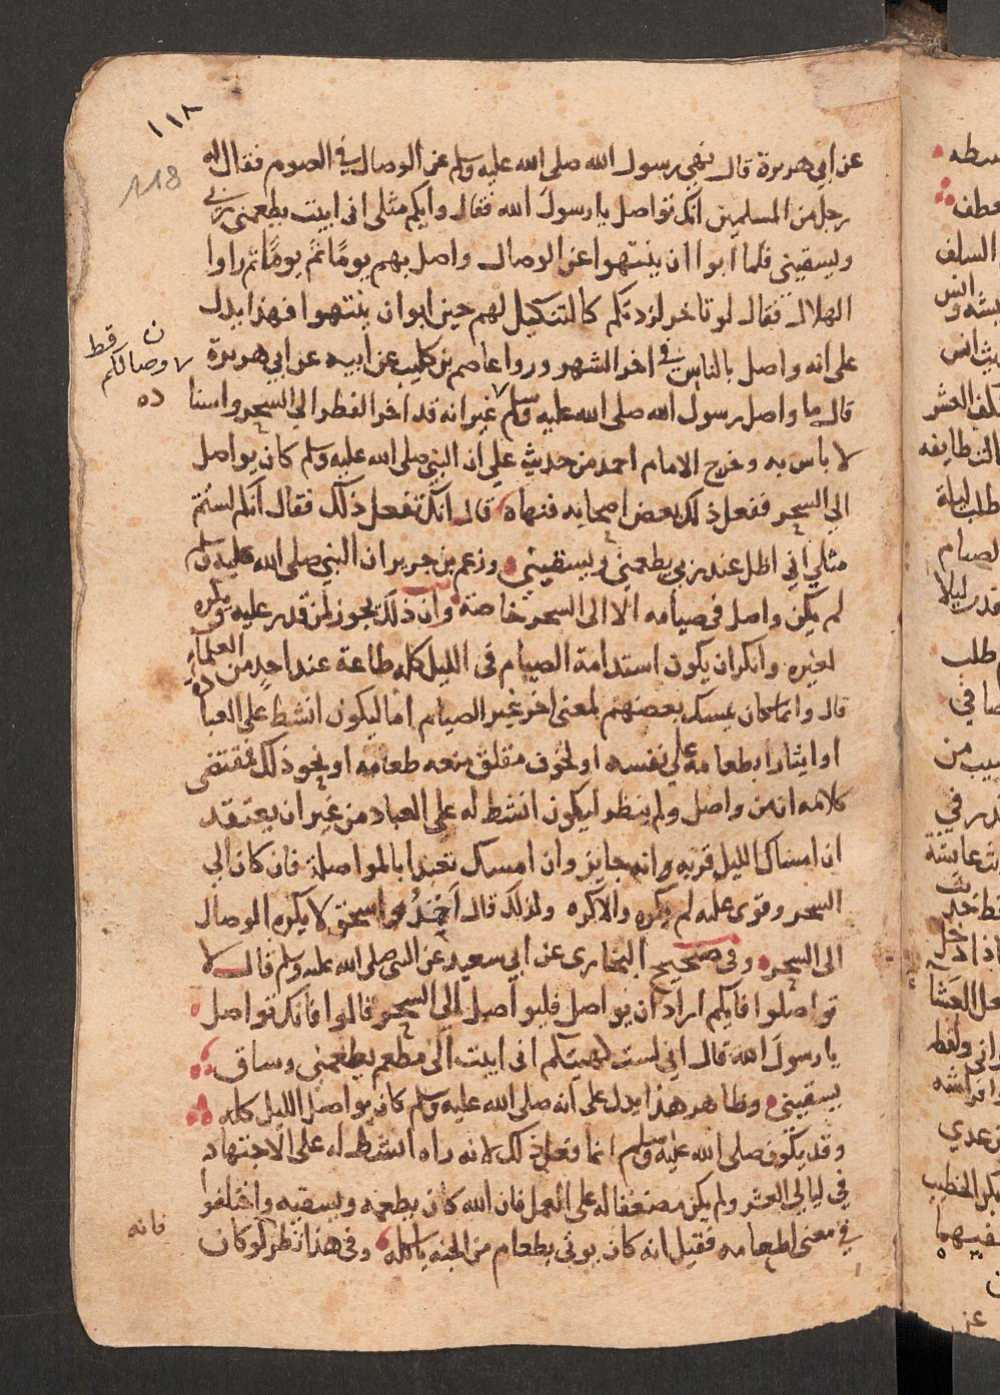 ١١٨
118
عن ابي هريرة قال نهى رسول الله صلى الله عليه وسلم عن الوصال في الصوم فقال له
رجل من المسلمين انك تواصل يا رسول الله فقال وايكم مثلي اني ابيت يطعمني ربي
ويسقيني فلما ابوا ان ينتهوا عن الوصال واصل بهم يومًا ثم يومًا ثم راوا
الهلال فقال لو تاخر لزدتكم كالتنكيل لهم حين ابوا ن ينتهوا فهذا يدل
على انه واصل بالناس في اخر الشهر وروا عاصم بن كليب عن ابيه عن ابي هريرة
قال ما واصل رسول الله صلى الله عليه وسلم غير انه قد اخر الفطر الي السحر واسنا
ده
ن قط
لا وصالكم
لا باس به وخرج الامام احمد من حديث علي ان النبي صلى الله عليه وسلم كان يواصل
الي السحر ففعل ذلك بعض اصحابه فنهاه قال انك تفعل ذلك فقال انكم لستم
مثلي اني اظل عند ربي يطعمني ويسقيني وزعم بن جرير ان النبي صلى الله عليه وسلم
لم يكن واصل في صيامه الا الى السحر خاصة وان ذلك يجوز لمن قدر عليه ويكره
لغيره وانكر ان يكون استدامة الصيام في الليل كله طاعة عند احدٍ من العلماء
قال وانما كان يمسك بعضهم لمعنى اخر غير الصيام اما ليكون انشط على العبا
ده
او ايثارا بطعامه على نفسه او لخوف مقلق منعه طعامه او نحو ذلك فمقتضى
كلامه ان من واصل ولم يفطر ليكون انشط له على العباد من غير ان يعتقد
ان امساك الليل قربه وانه جايز وان امسك تعبدا بالمواصلة فان كان الي
السحر وقوى عليه لم يكره والا كره ولذلك قال احمد واسحق لا يكره الوصال
الى السحر وفي صحيح البخارى عن ابي سعيد عن النبي صلى الله عليه وسلم قال لا
تواصلوا فايكم اراد ان يواصل فليواصل الي السحر قالوا فانك تواصل
يا رسول الله قال اني لست كهيتكم اني ابيت الى مطعم يطعمني وساق
يسقيني وظاهر هذا يدل على انه صلى الله عليه وسلم كان يواصل الليل كله
وقد يكون صلى الله عليه وسلم انما فعل ذلك لانه راه انشط له على الاجتهاد
في ليالي العشر ولم يكن مضعفا له على العمل فان الله كان يطعمه ويسقيه واختلفوا
في معنى اطعامه فقيل انه كان يوتى بطعام من الجنه ياكله وفى هذا نظر لو كان
فانه